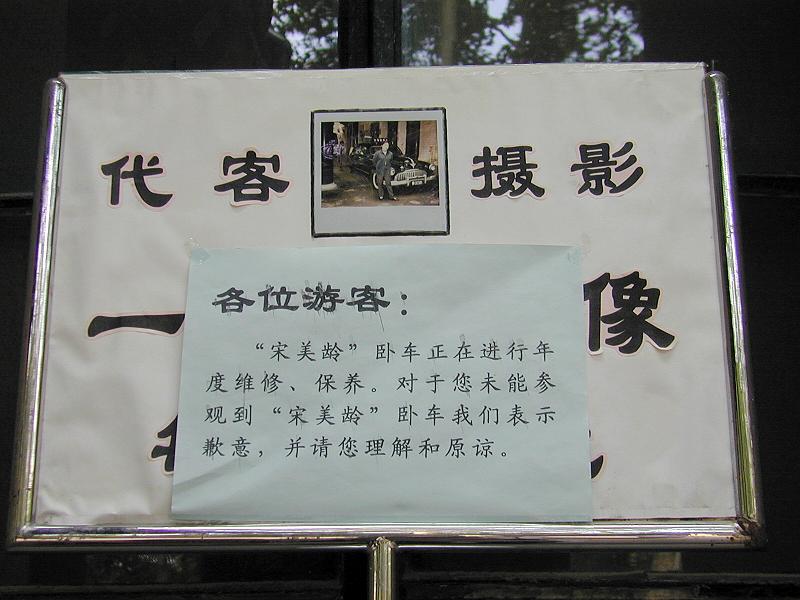 代客 摄影
一 像
各位游客：
“宋美龄”卧车正在进行年
度维修、保养。对于您未能参
观到“宋美龄”卧车我们表示
歉意，并请您理解和原谅。